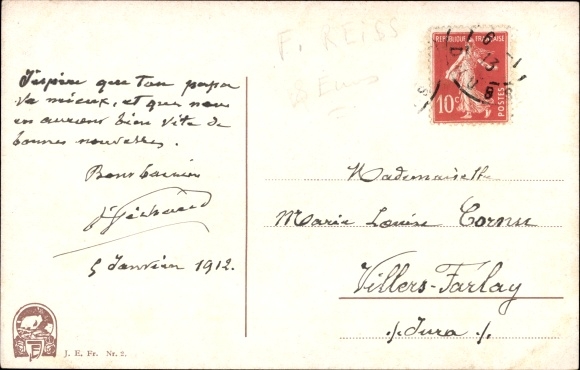 F. REISS
REPUBLIQUE FRANÇAISE
10c
POSTES
J'espère que ton papa
va mieux, et que nous
en aurons bien vite de
bonnes nouvelles.
Bons baisers
5 Janvier 1912.
Mademoiselle
Marie Louise Cornu
Villers-Farlay
./Jura /.
J. E. Fr. Nr. 2.